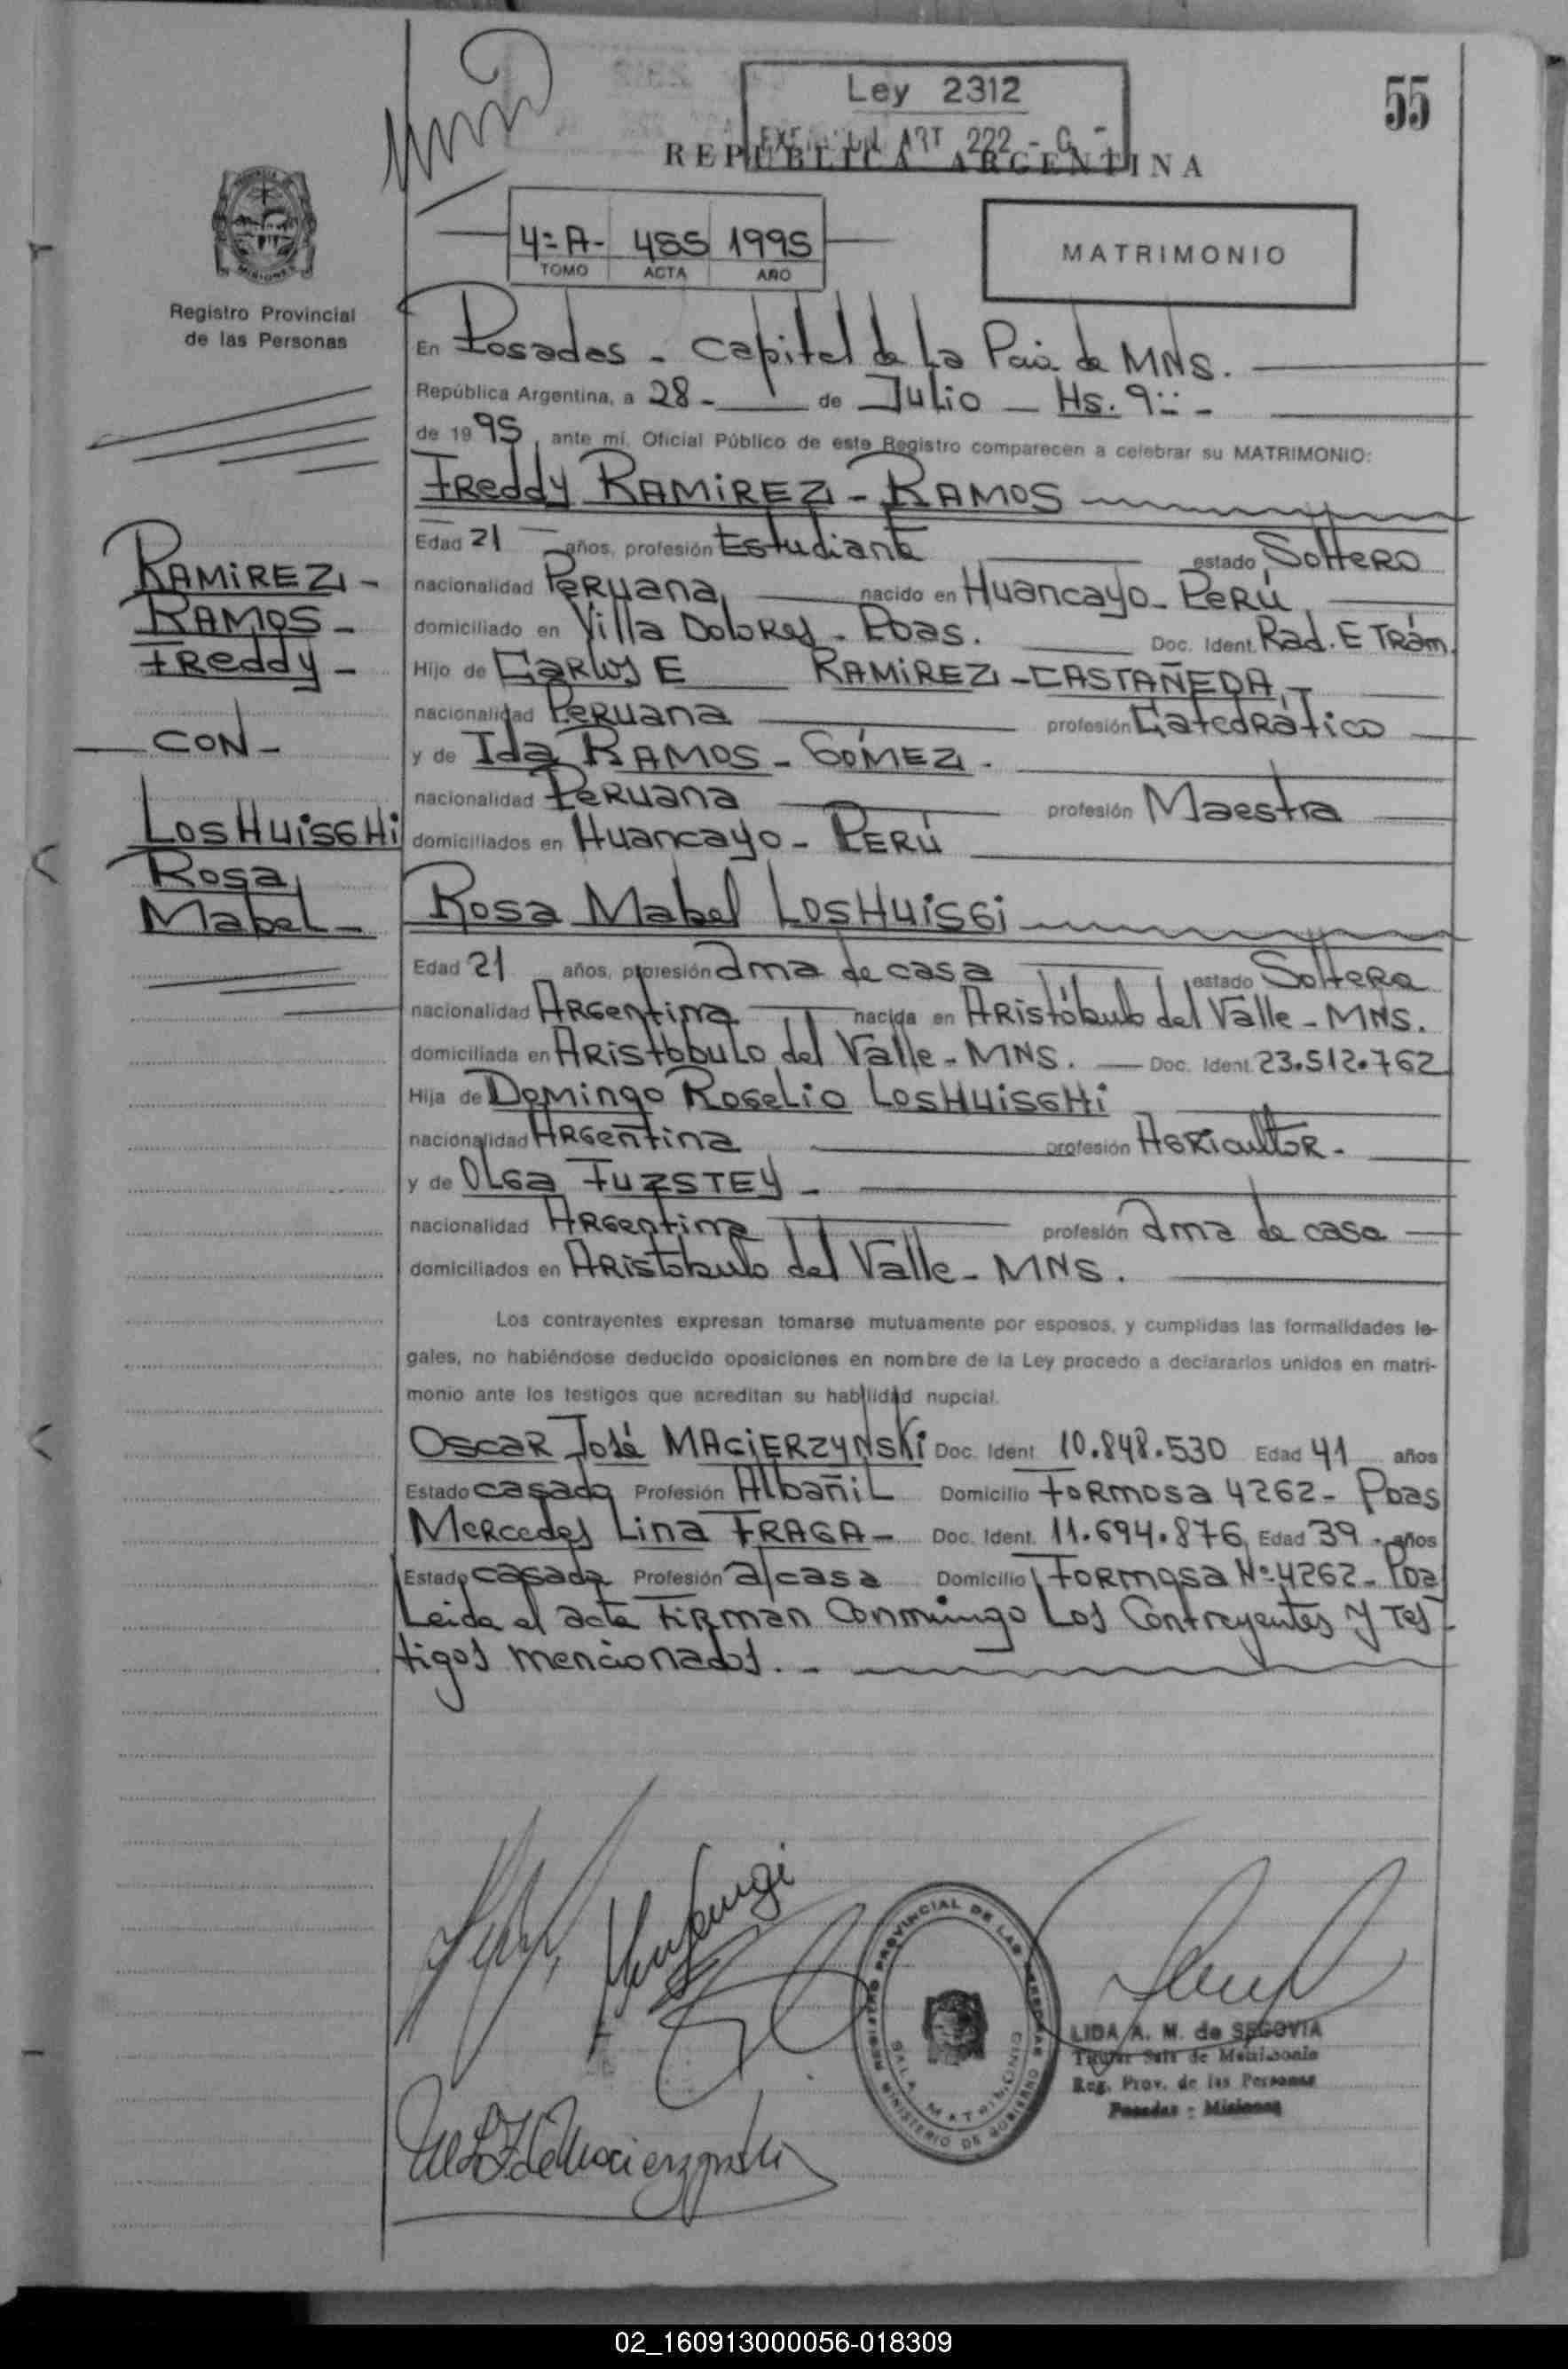 Ley 2312
ART 222 - C -
55
REPUBLICA ARGENTINA
4º A- 455 1995
TOMO ACTA AÑO
MATRIMONIO
MISIONES
Registro Provincial
de las Personas
En Posadas - Capital de La Pcia de MNS.
República Argentina, a 28 - de Julio - Hs. 9:: -
de 1995, ante mí, Oficial Público de este Registro comparecen a celebrar su MATRIMONIO:
Freddy RAMIREZ - RAMOS
Edad 21 años, profesión Estudiante estado Soltero
nacionalidad Peruana, nacido en Huancayo - Perú,
domiciliado en Villa Dolores - Pdas. Doc. Ident. Rad. E Trám.
Hijo de Carlos E RAMIREZ - CASTAÑEDA, -
nacionalidad Peruana profesión Catedrático
y de Ida RAMOS - GÓMEZ -
nacionalidad Peruana profesión Maestra
domiciliados en Huancayo - PERÚ
RAMIREZ -
RAMOS -
Freddy -
CON -
LOSHUISGHi
Rosa
Mabel -
Rosa Mabel LOSHUiSGi
Edad 21 años, profesión ama de casa estado Soltera
nacionalidad Argentina nacida en Aristóbulo del Valle - MNS.
domiciliada en Aristobulo del Valle - MNS. Doc. Ident. 23.512.762
Hija de Domingo Rogelio LOSHUISGHi
nacionalidad Argentina profesión Agricultor -
y de OLGA FUZSTEY -
nacionalidad Argentina profesión ama de casa
domiciliados en Aristobulo del Valle - MNS.
Los contrayentes expresan tomarse mutuamente por esposos, y cumplidas las formalidades le-
gales, no habiéndose deducido oposiciones en nombre de la Ley procedo a declararlos unidos en matri-
monio ante los testigos que acreditan su habilidad nupcial.
Oscar José MACIERZYNSKi Doc. Ident. 10.848.530 Edad 41 años
Estado casado Profesión Albañil Domicilio Formosa 4262 - Pdas
Mercedes Lina FRAGA - Doc. Ident. 11.694.876 Edad 39 - años
Estado casada Profesión a/casa Domicilio Formosa Nº 4262 - Pda
Leida el acta Firman Conmingo Los Contrayentes y Tes-
tigos mencionados. -
REGISTRO PROVINCIAL DE LAS PERSONAS
SALA MATRIMONIO
MINISTERIO DE GOBIERNO
LIDA A. M. de SEGOVIA
Titular Sala de Matrimonio
Reg. Prov. de las Personas
Posadas - Misiones
02_160913000056-018309